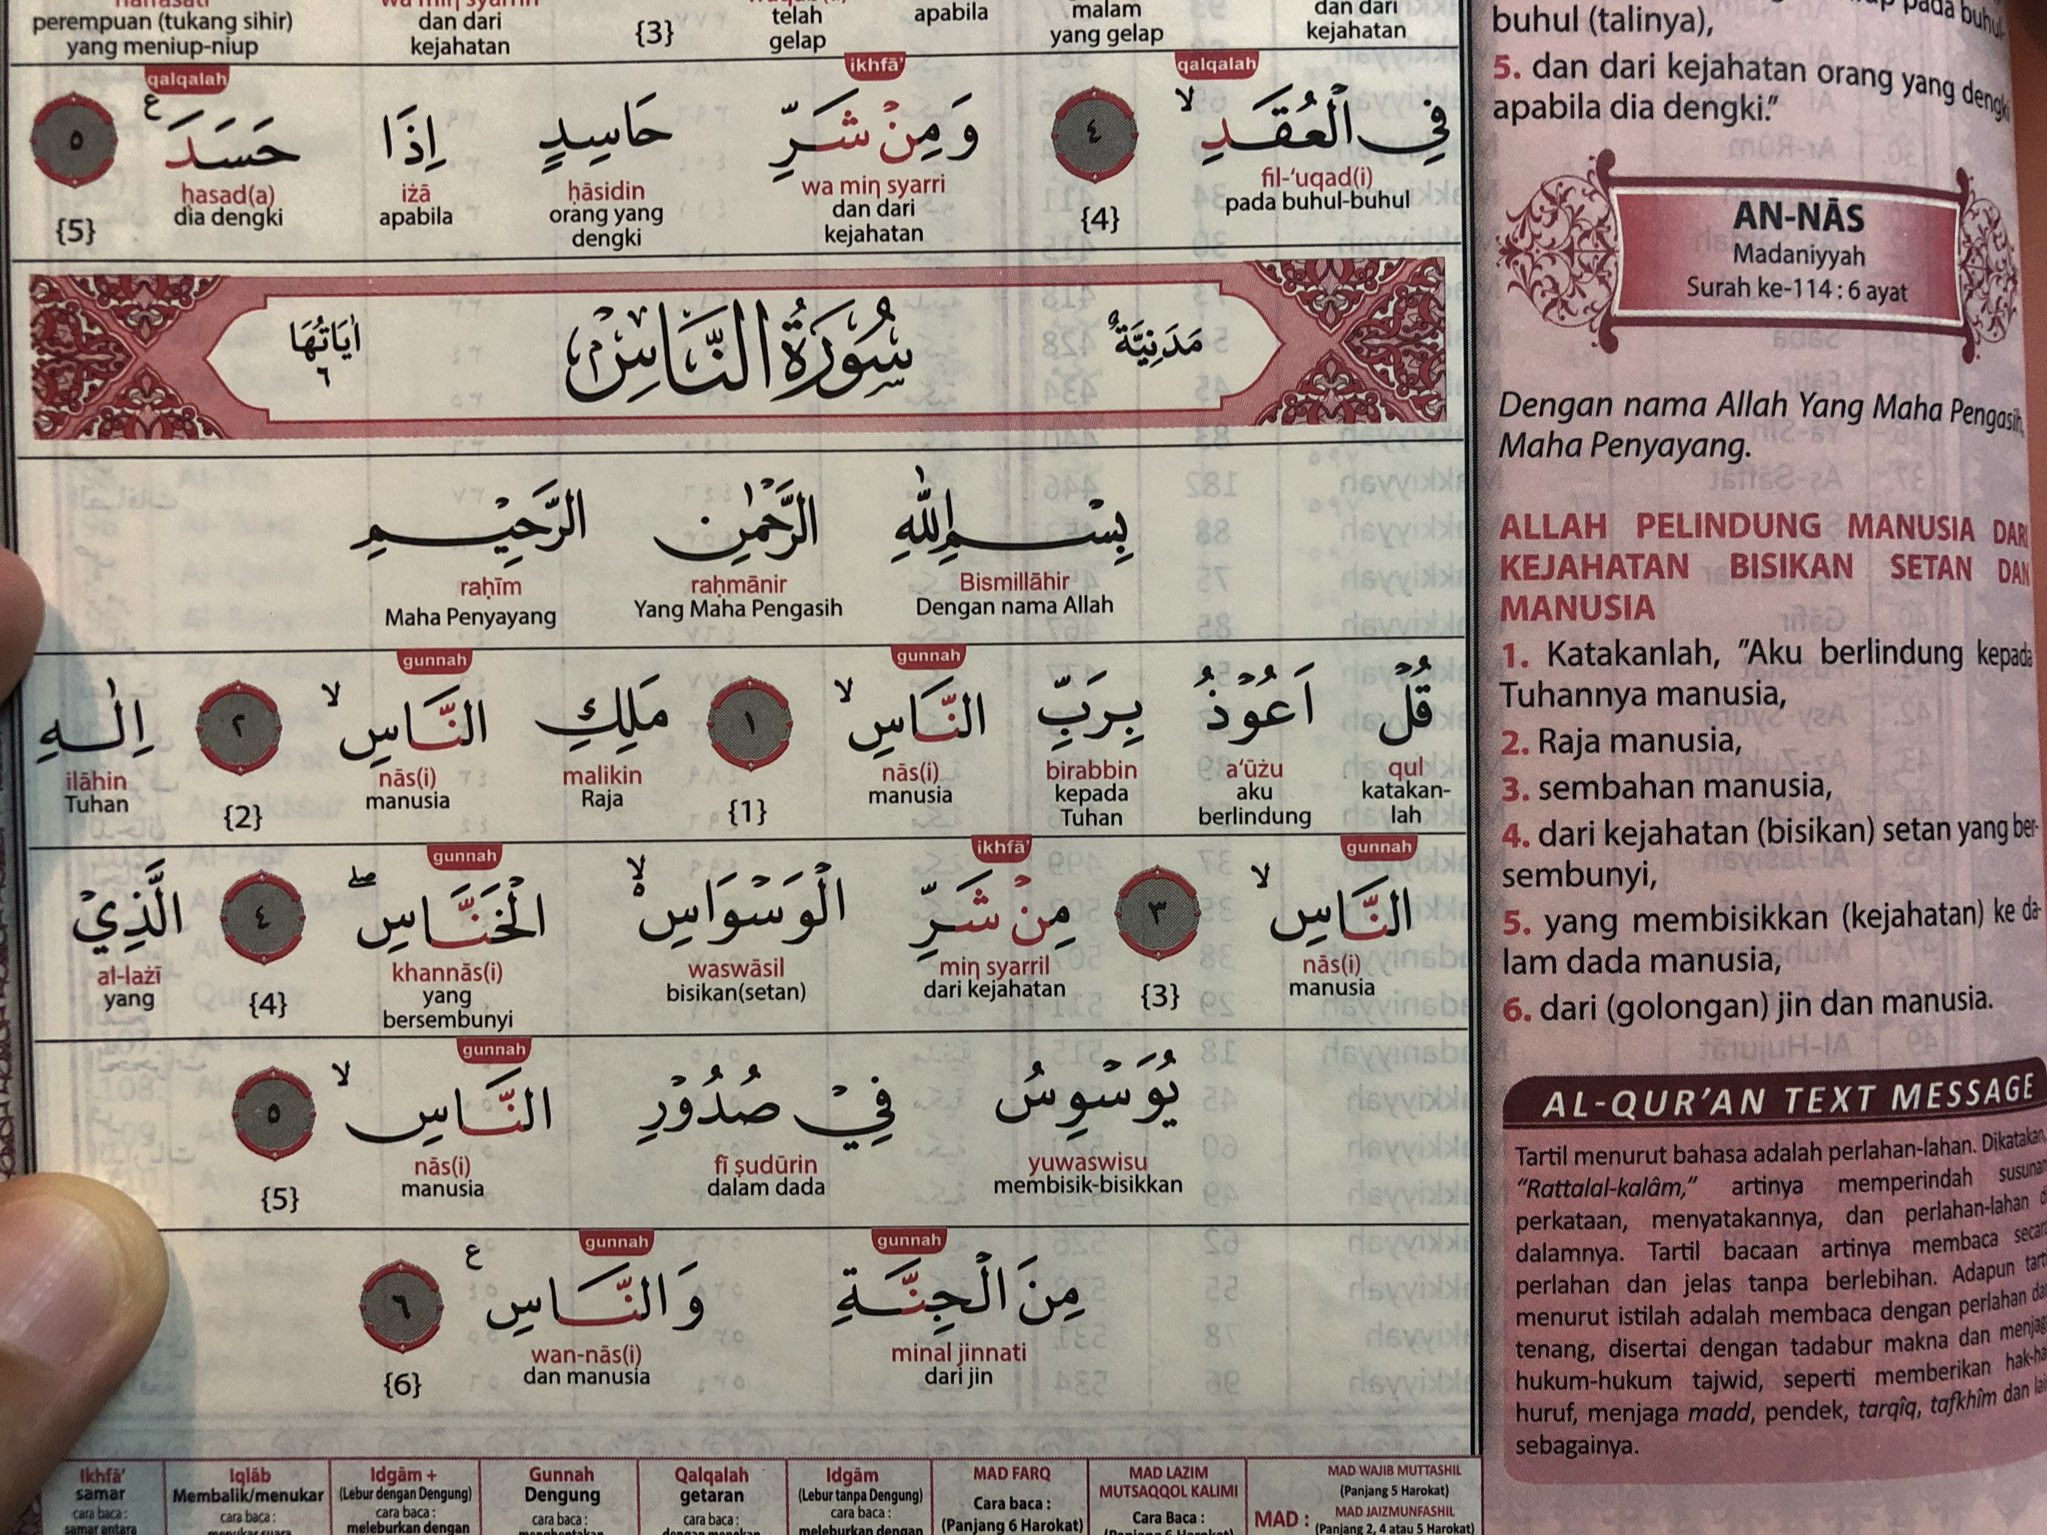 perempuan (tukang sihir) dan dari {3} telah apabila malam dan dari
yang meniup-niup kejahatan gelap yang gelap kejahatan
qalqalah ikhfā' qalqalah
فِى الْعُقَدِ ۙ ٤ وَمِنْ شَرِّ حَاسِدٍ اِذَا حَسَدَ ࣖ ٥
ḥasad(a) iżā ḥāsidin wa miŋ syarri fil-‘uqad(i)
dia dengki apabila orang yang dan dari pada buhul-buhul
{5} dengki kejahatan {4}
مَدَنِيَّةٌ سُوْرَةُ النَّاسِ اٰيَاتُهَا ٦
بِسْمِ اللّٰهِ الرَّحْمٰنِ الرَّحِيْمِ
raḥīm raḥmānir Bismillāhir
Maha Penyayang Yang Maha Pengasih Dengan nama Allah
gunnah gunnah
قُلْ اَعُوْذُ بِرَبِّ النَّاسِ ۙ ١ مَلِكِ النَّاسِ ۙ ٢ اِلٰهِ
ilāhin nās(i) malikin nās(i) birabbin a‘ūżu qul
Tuhan manusia Raja manusia kepada aku katakan-
{2} {1} Tuhan berlindung lah
gunnah ikhfā' gunnah
النَّاسِ ۙ ٣ مِنْ شَرِّ الْوَسْوَاسِ ەۙ الْخَنَّاسِ ۖ ٤ الَّذِيْ
al-lażī khannās(i) waswāsil miŋ syarril nās(i)
yang yang bisikan(setan) dari kejahatan manusia
{4} bersembunyi {3}
gunnah
يُوَسْوِسُ فِيْ صُدُوْرِ النَّاسِ ۙ ٥
nās(i) fī ṣudūrin yuwaswisu
{5} manusia dalam dada membisik-bisikkan
gunnah gunnah
مِنَ الْجِنَّةِ وَالنَّاسِ ࣖ ٦
wan-nās(i) minal jinnati
{6} dan manusia dari jin
Ikhfā' Iqlāb Idgām + Gunnah Qalqalah Idgām MAD FARQ MAD LAZIM MAD WAJIB MUTTASHIL
samar Membalik/menukar (Lebur dengan Dengung) Dengung getaran (Lebur tanpa Dengung) MUTSAQQOL KALIMI (Panjang 5 Harokat)
cara baca : cara baca : cara baca : cara baca : cara baca : cara baca : Cara baca : Cara Baca : MAD : MAD JAIZMUNFASHIL
meleburkan dengan meleburkan dengan (Panjang 6 Harokat) (Panjang 2, 4 atau 5 Harokat)
buhul (talinya),
5. dan dari kejahatan orang yang dengki
apabila dia dengki."
AN-NĀS
Madaniyyah
Surah ke-114 : 6 ayat
Dengan nama Allah Yang Maha Pengasih,
Maha Penyayang.
ALLAH PELINDUNG MANUSIA DARI
KEJAHATAN BISIKAN SETAN DAN
MANUSIA
1. Katakanlah, "Aku berlindung kepada
Tuhannya manusia,
2. Raja manusia,
3. sembahan manusia,
4. dari kejahatan (bisikan) setan yang ber-
sembunyi,
5. yang membisikkan (kejahatan) ke da-
lam dada manusia,
6. dari (golongan) jin dan manusia.
AL-QUR'AN TEXT MESSAGE
Tartil menurut bahasa adalah perlahan-lahan. Dikatakan,
"Rattalal-kalâm," artinya memperindah susunan
perkataan, menyatakannya, dan perlahan-lahan
dalamnya. Tartil bacaan artinya membaca secara
perlahan dan jelas tanpa berlebihan. Adapun tartil
menurut istilah adalah membaca dengan perlahan dan
tenang, disertai dengan tadabur makna dan menjaga
hukum-hukum tajwid, seperti memberikan hak-hak
huruf, menjaga madd, pendek, tarqîq, tafkhîm dan lain
sebagainya.